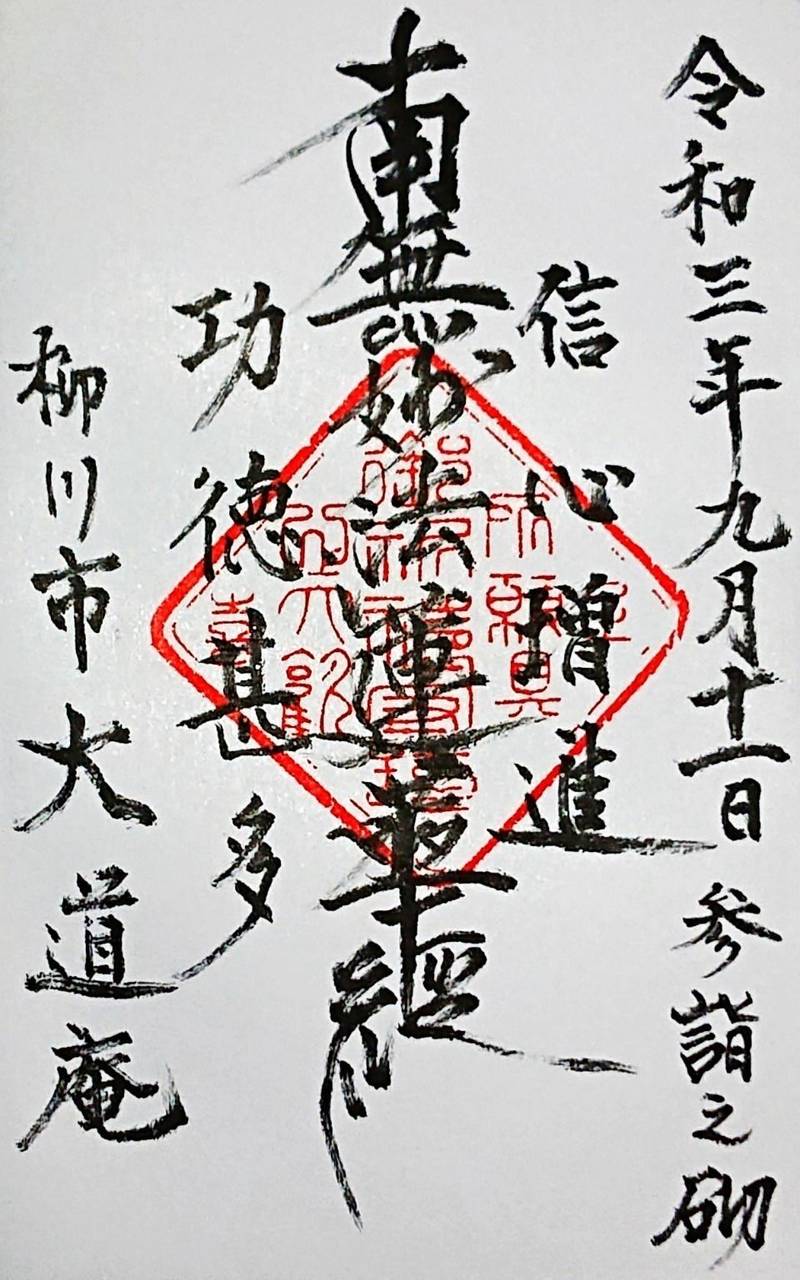 令和三年九月十一日 参詣之砌
信心増進
南無妙法蓮華経
功徳甚多
柳川市 大道庵